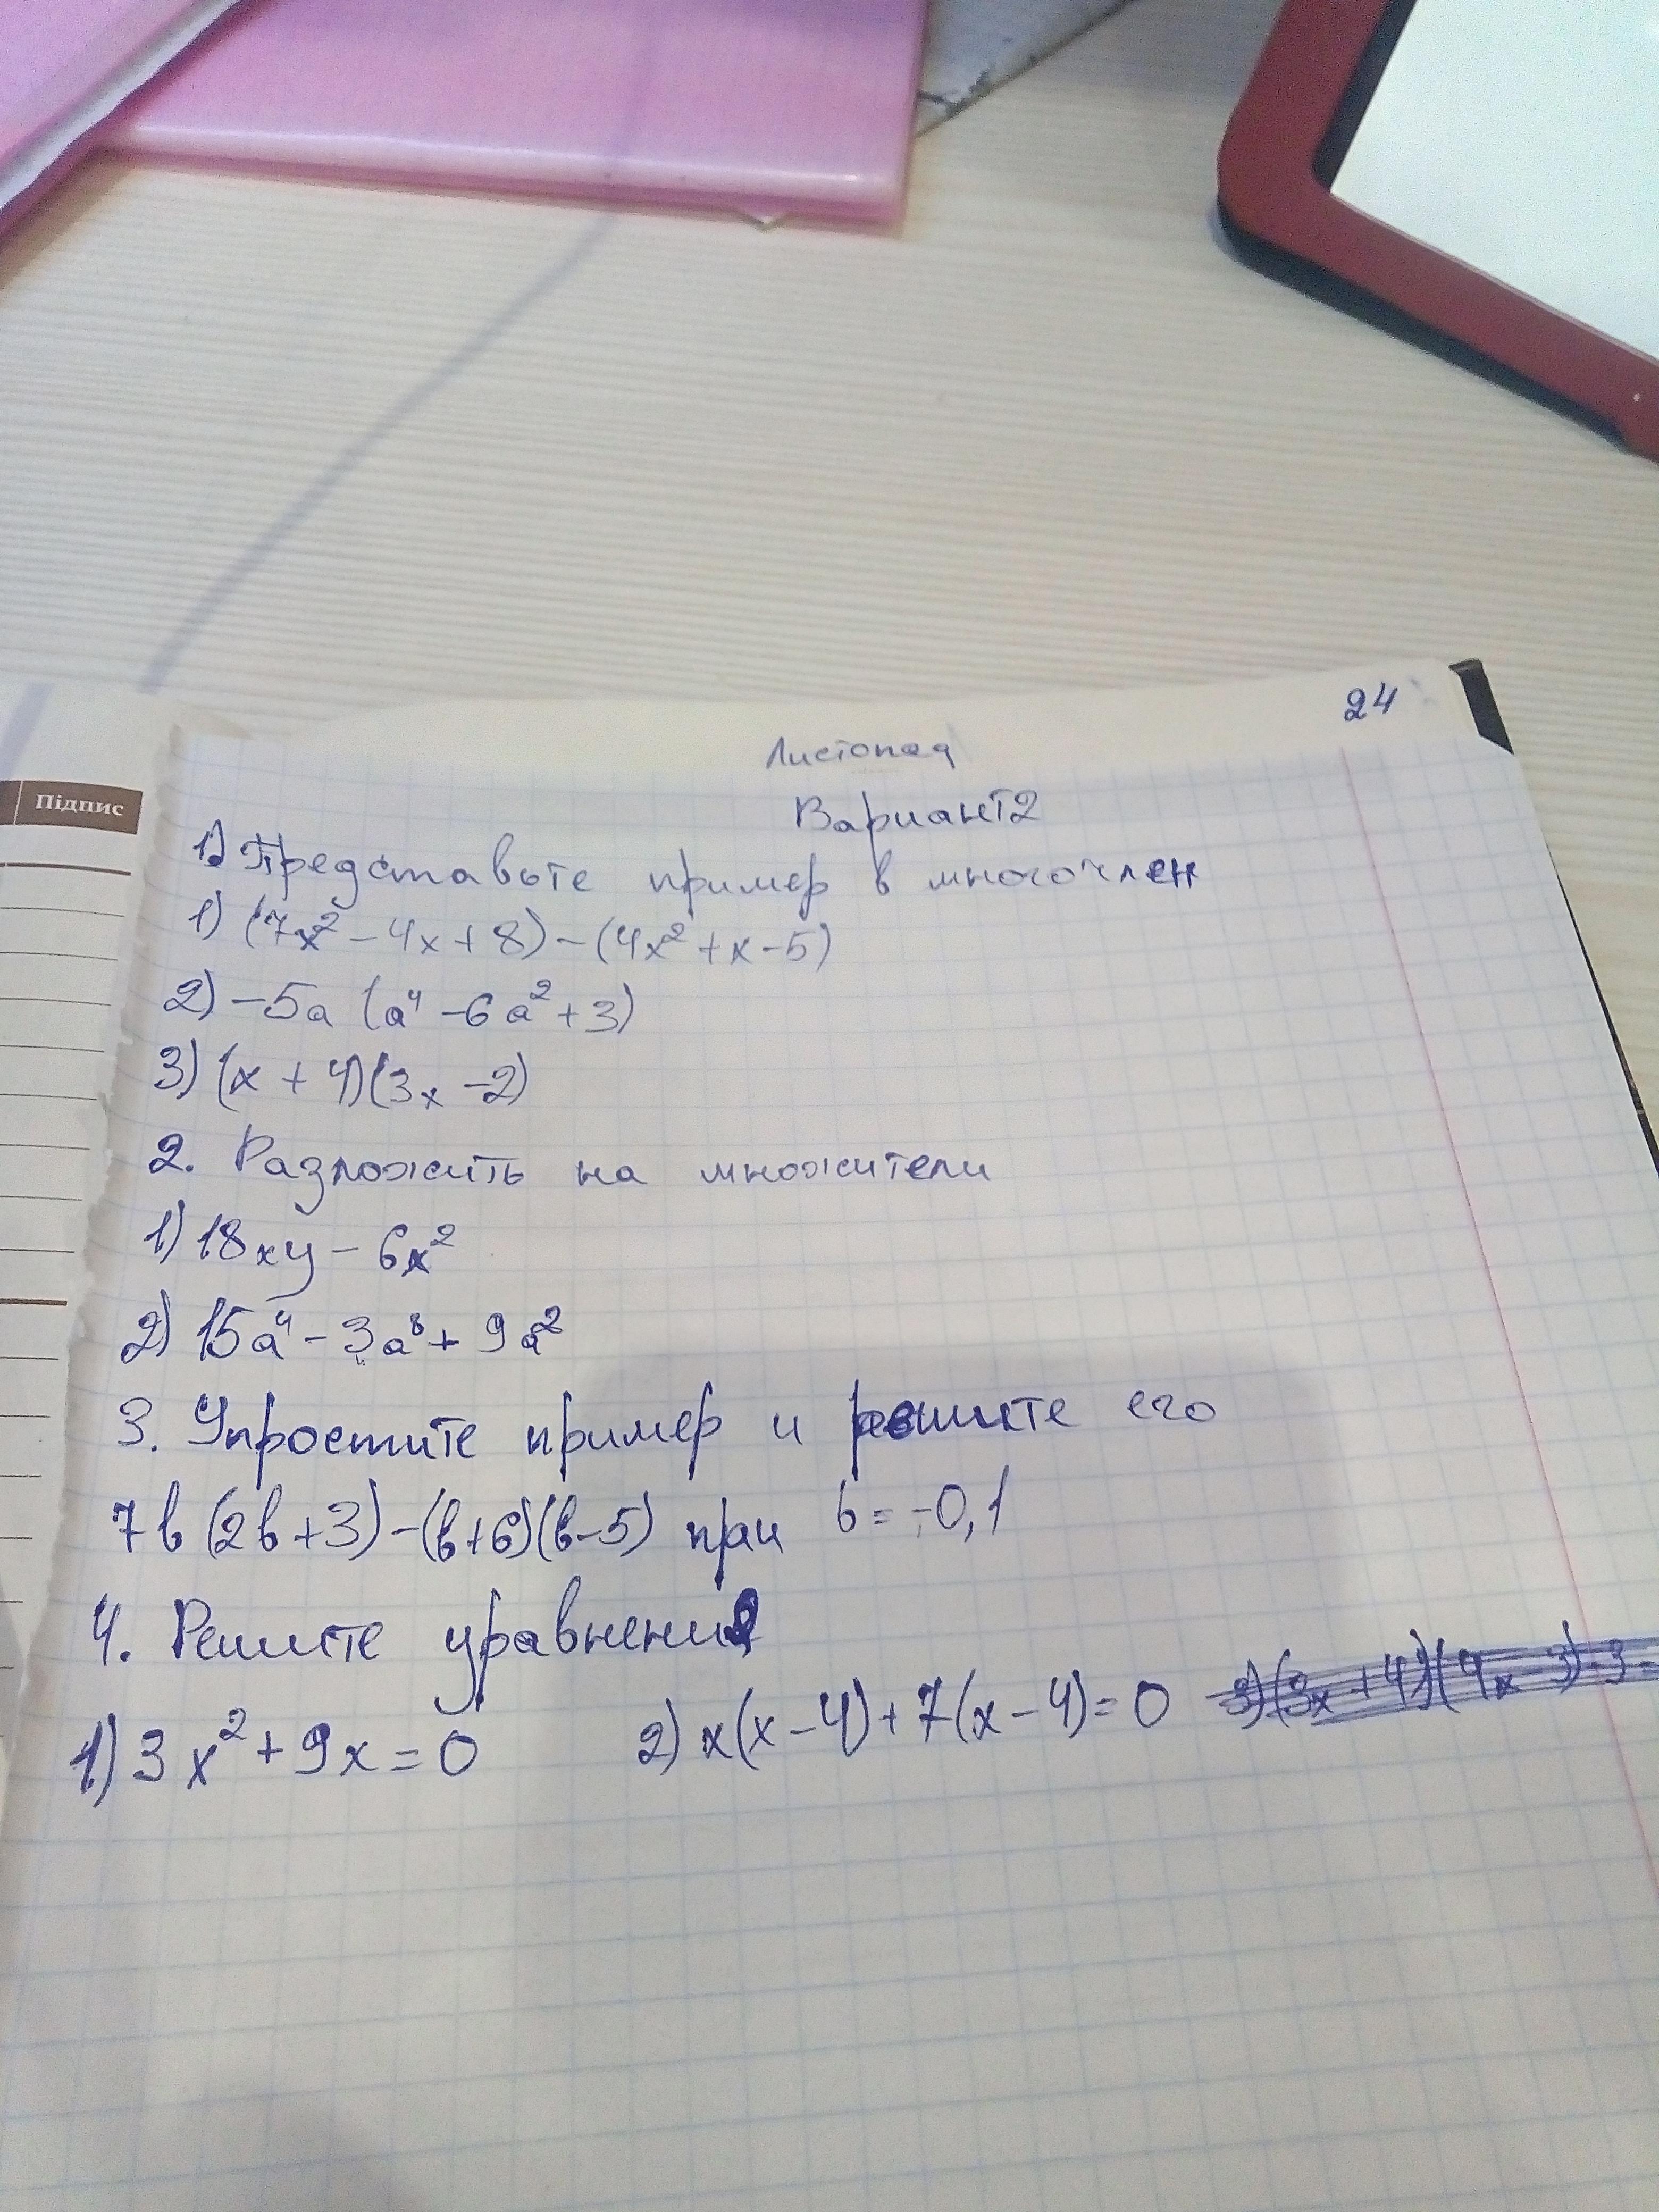 24
Листопад
Підпис
Вариант 2
1) Представьте пример в многочлен
1) (7x² - 4x + 8) - (4x² + x - 5)
2) -5a (a⁴ - 6a² + 3)
3) (x + 4)(3x - 2)
2. Разложить на множители
1) 18xy - 6x²
2) 15a⁴ - 3a⁸ + 9a²
3. Упростите пример и решите его
7b (2b + 3) - (b + 6)(b - 5) при b = -0,1
4. Решите уравнения
1) 3x² + 9x = 0 2) x(x - 4) + 7(x - 4) = 0